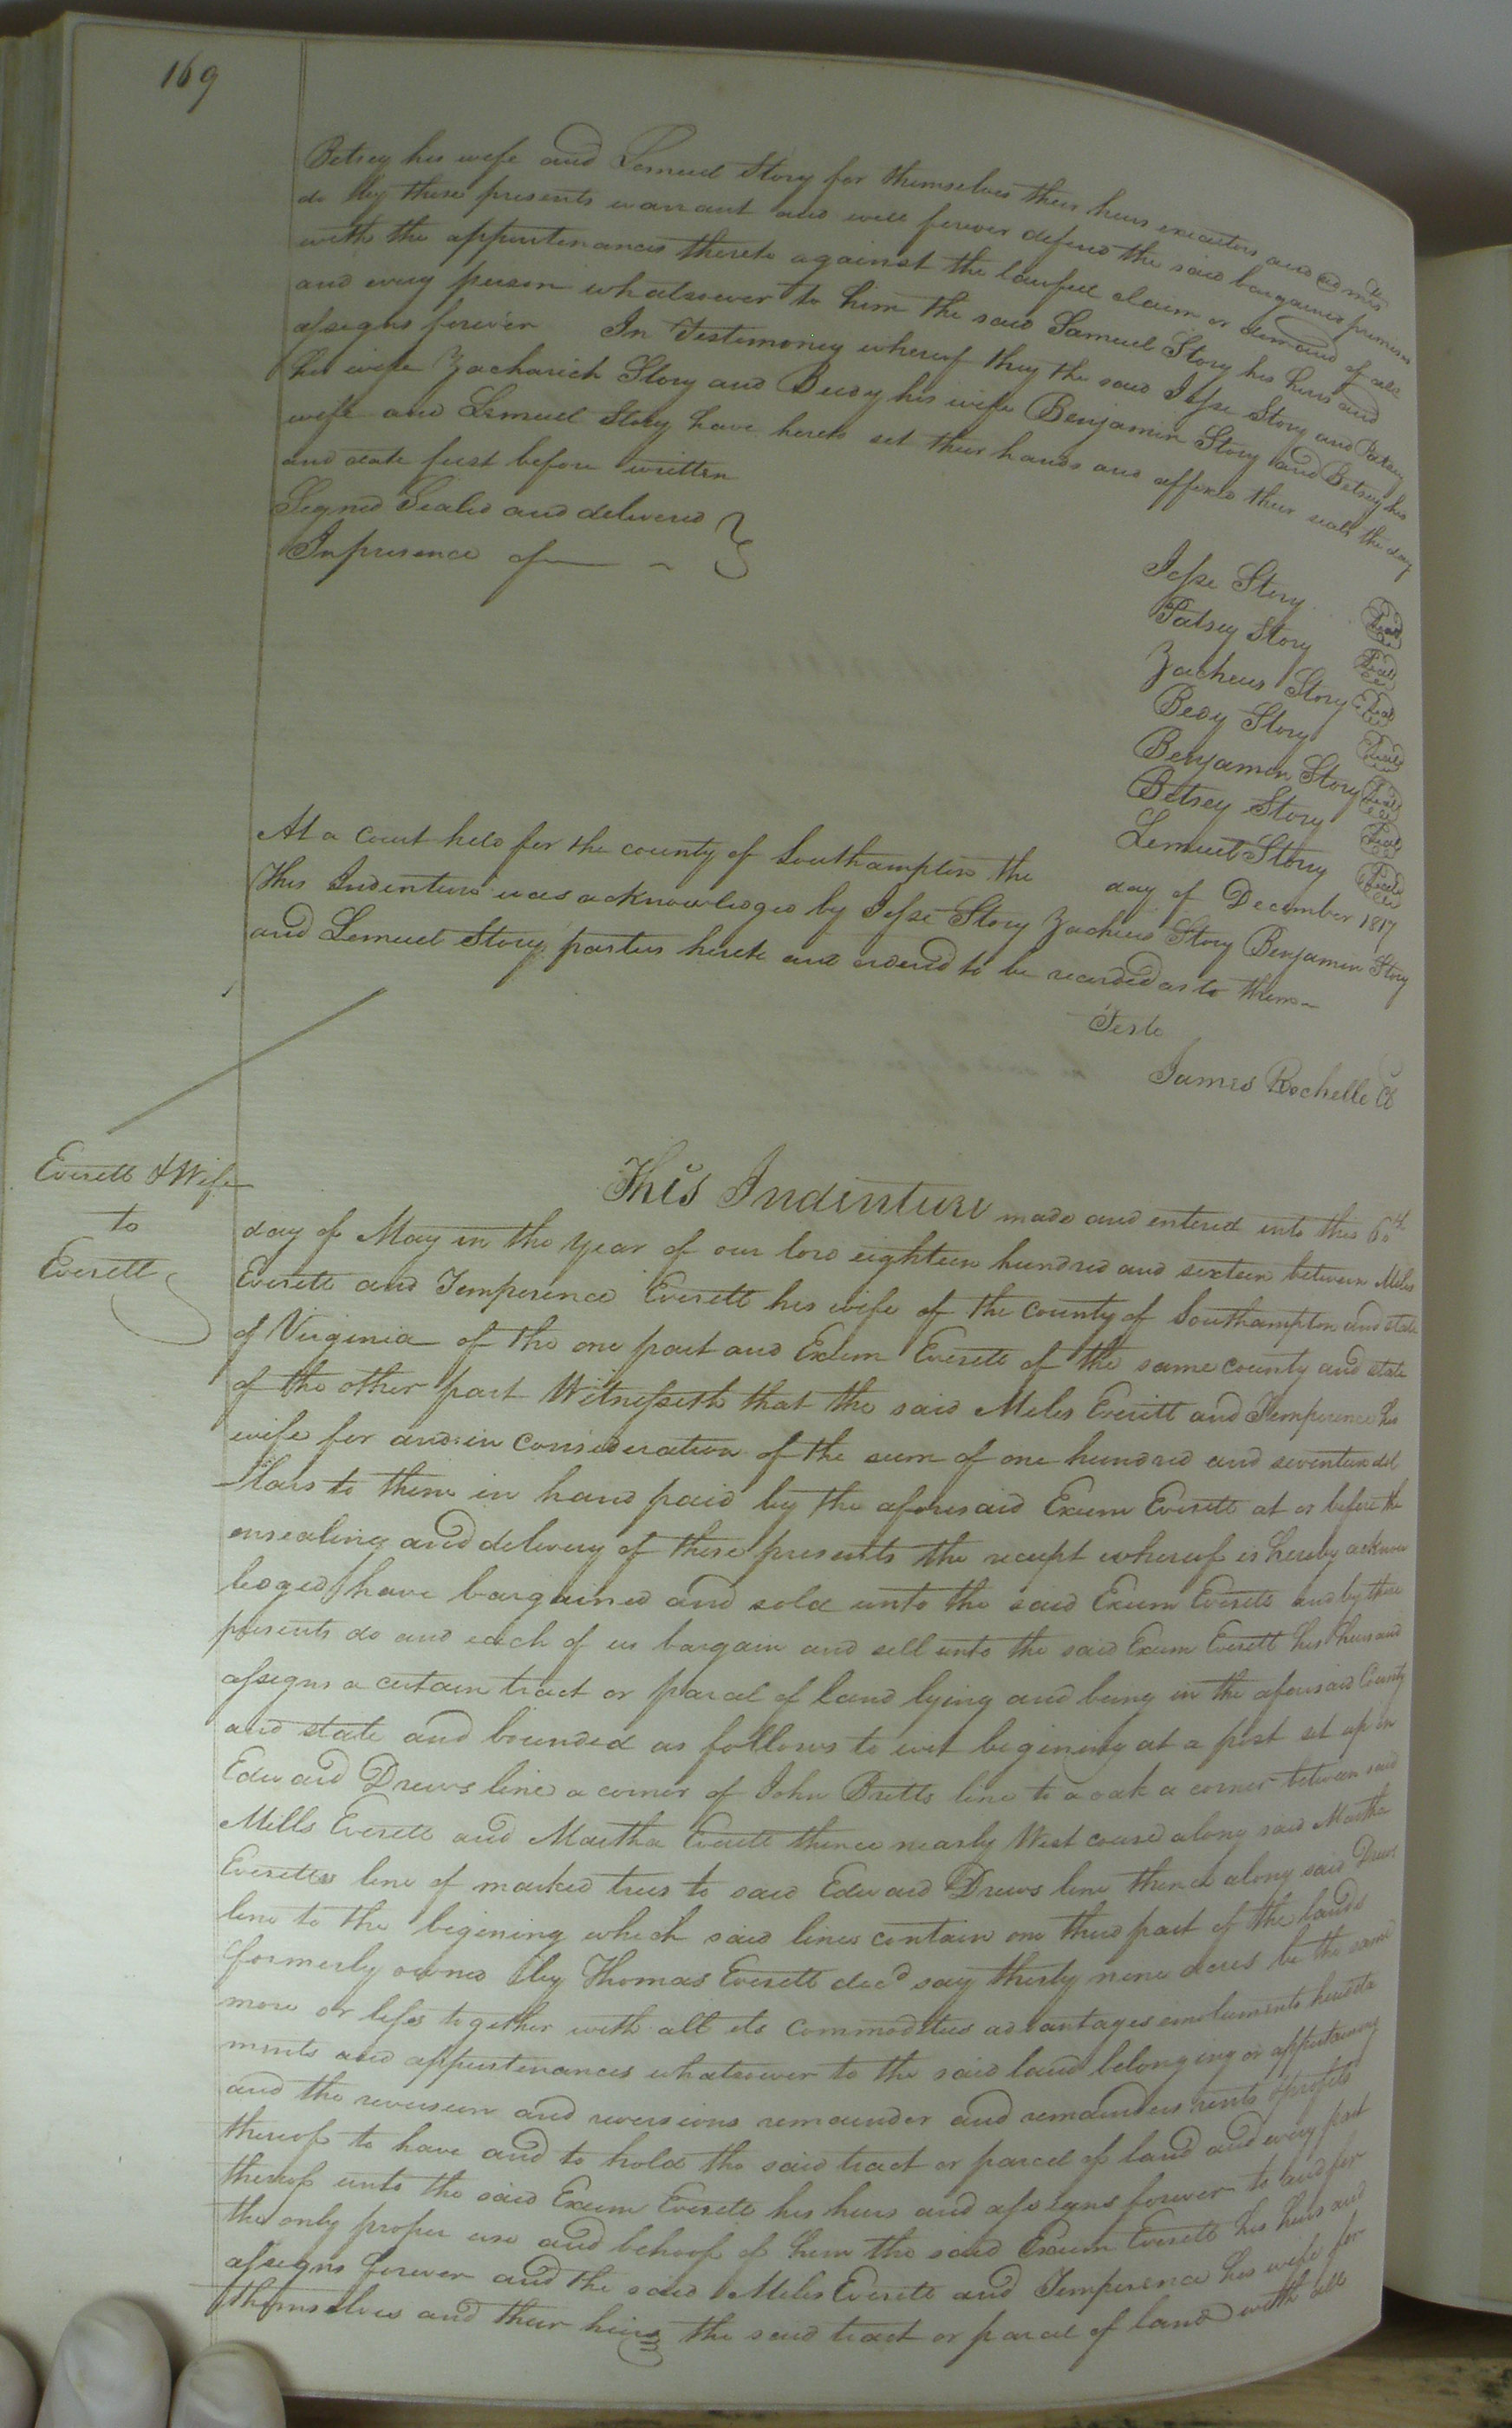 169
Betsey his wife and Lemuel Story for themselves their heirs executors and admrs
do by these presents warrant and will forever defend the said bargained premises
with the appurtenances thereto against the lawful claim or demand of all
and every person whatsoever to him the said Samuel Story his heirs and
assigns forever In Testimoney whereof they the said Jesse Story and Patsey
his wife Zachariah Story and Beedy his wife Benjamin Story and Betsey his
wife and Lemuel Story have hereto set their hands and affixed their seals the day
and date first before written
Signed Sealed and delivered
In presence of
Jesse Story Seal
Patsey Story Seal
Zacheus Story Seal
Beedy Story Seal
Benjamin Story Seal
Betsey Story Seal
Lemuel Story Seal
At a court held for the county of Southampton the day of December 1817
This Indenture was acknowledged by Jesse Story Zacheus Story Benjamin Story
and Lemuel Story parties hereto and ordered to be recorded as to them
Teste
James Rochelle Cl
Everett & Wife
to
Everett
This Indenture made and entered into this 6th
day of May in the year of our lord eighteen hundred and sixteen between Miles
Everett and Temperence Everett his wife of the county of Southampton and state
of Virginia of the one part and Exum Everett of the same county and state
of the other part Witnesseth that the said Miles Everitt and Temperence his
wife for and in consideration of the sum of one hundred and seventeen dol
llars to them in hand paid by the aforesaid Exum Everett at or before the
ensealing and delivery of these presents the receipt whereof is hereby acknow
ledged have bargained and sold unto the said Exum Everett and by these
presents do and each of us bargain and sell unto the said Exum Everett his heirs and
assigns a certain tract or parcel of land lying and being in the aforesaid County
and state and bounded as follows to wit begining at a post set up in
Edward Drews line a corner of John Britts line to a oak a corner between said
Mills Everett and Martha Everett thence nearly West course along said Martha
Everetts line of marked trees to said Edward Drews line thence along said Drews
line to the begining which said lines contain one third part of the lands
formerly owned by Thomas Everett decd say thirty nine acres be the same
more or less together with all its commodities advantages emoluments heredita
ments and appurtenances whatsoever to the said land belonging or appertaining
and the reversion and reversions remainder and remainders rents & profits
thereof to have and to hold the said tract or parcel of land and every part
thereof unto the said Exum Everett his heirs and assigns forever to and for
the only proper use and behoof of him the said Exum Everett his heirs and
assigns forever and the said Miles Everett and Temperence his wife for
themselves and their heirs the said tract or parcel of land with all